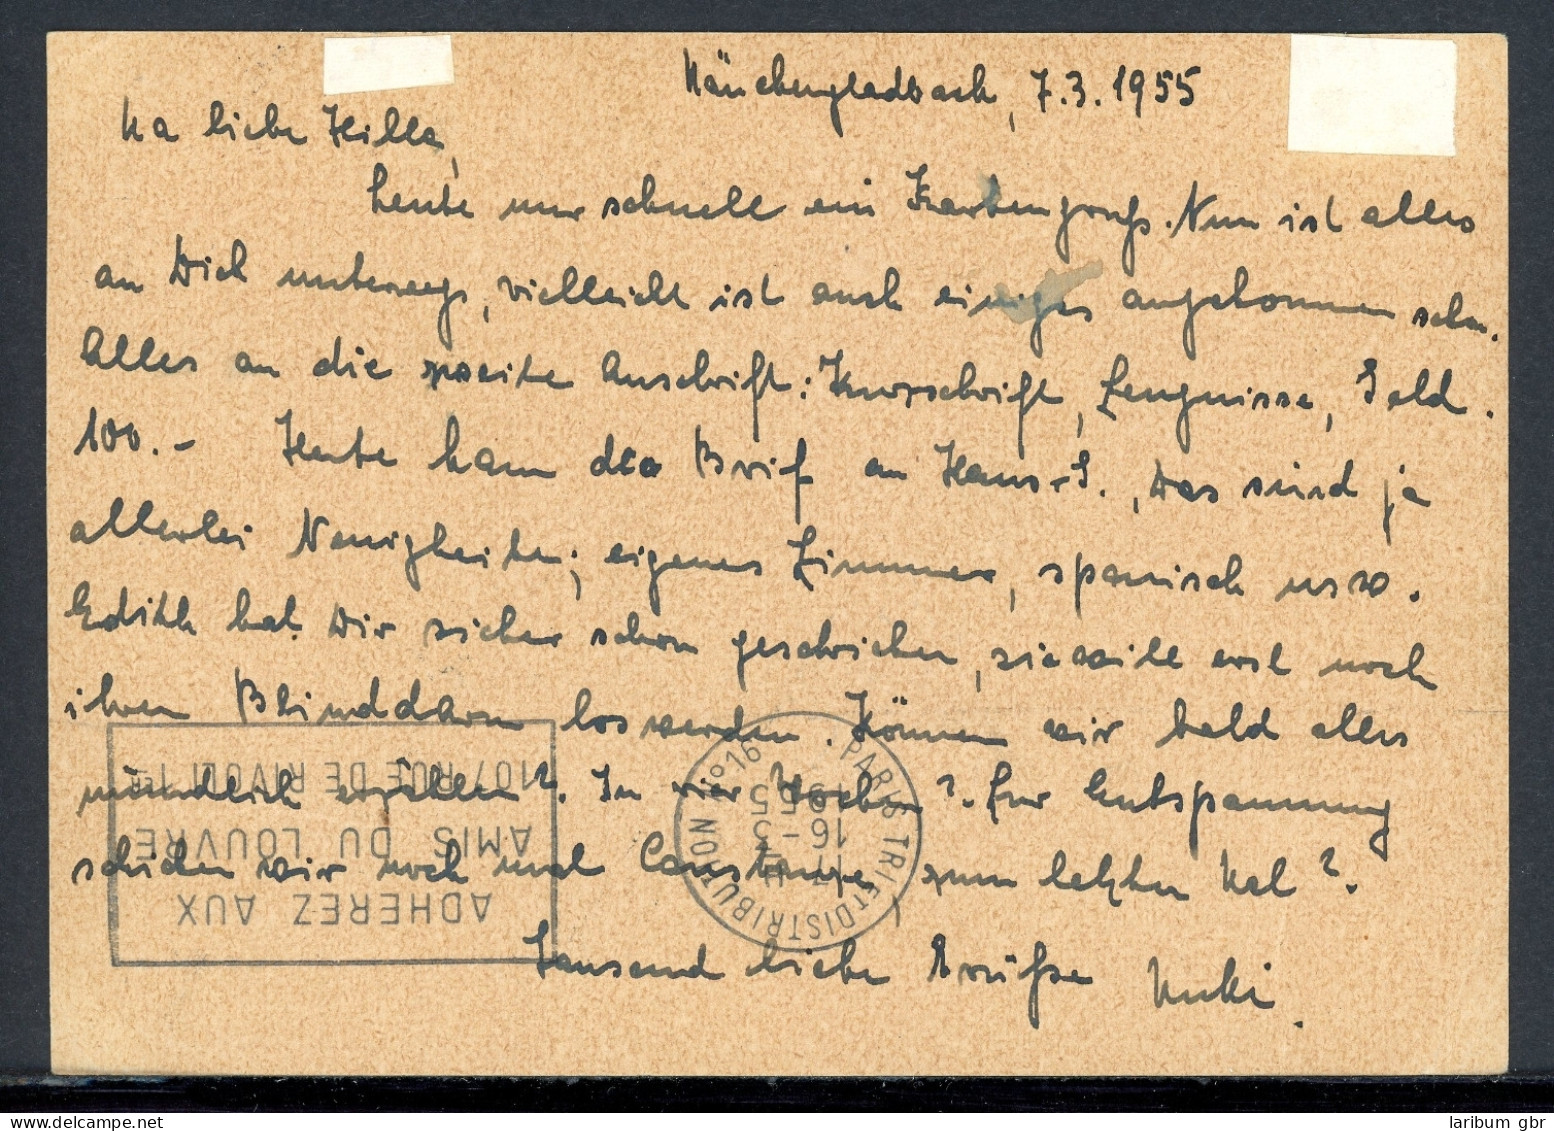 Mönchengladbach, 7.3.1955
Ma liebe Hilla,
heute nur schnell ein Kartengruß. Nun ist alles
an Dich unterwegs, vielleicht ist auch einiges angekommen schon.
Alles an die zweite Anschrift: Kurzschrift, Zeugnisse, Geld.
100.- Heute kam der Brief an Hans-G., Das sind ja
allerlei Neuigkeiten; eigenes Zimmer, spanisch usw.
Edith hat Dir sicher schon geschrieben, sie will erst noch
ihren Blinddarm loswerden. Können wir bald alles
mündlich erzählen?. In vier Wochen?. Zur Entspannung
schicken wir noch mal Constanze, zum letzten Mal?.
Tausend liebe Grüße Muki.
ADHEREZ AUX
AMIS DU LOUVRE
107 RUE DE RIVOLI 1er
PARIS TRI ET DISTRIBUTION N°16
17H
16-3
1955
laribum gbr